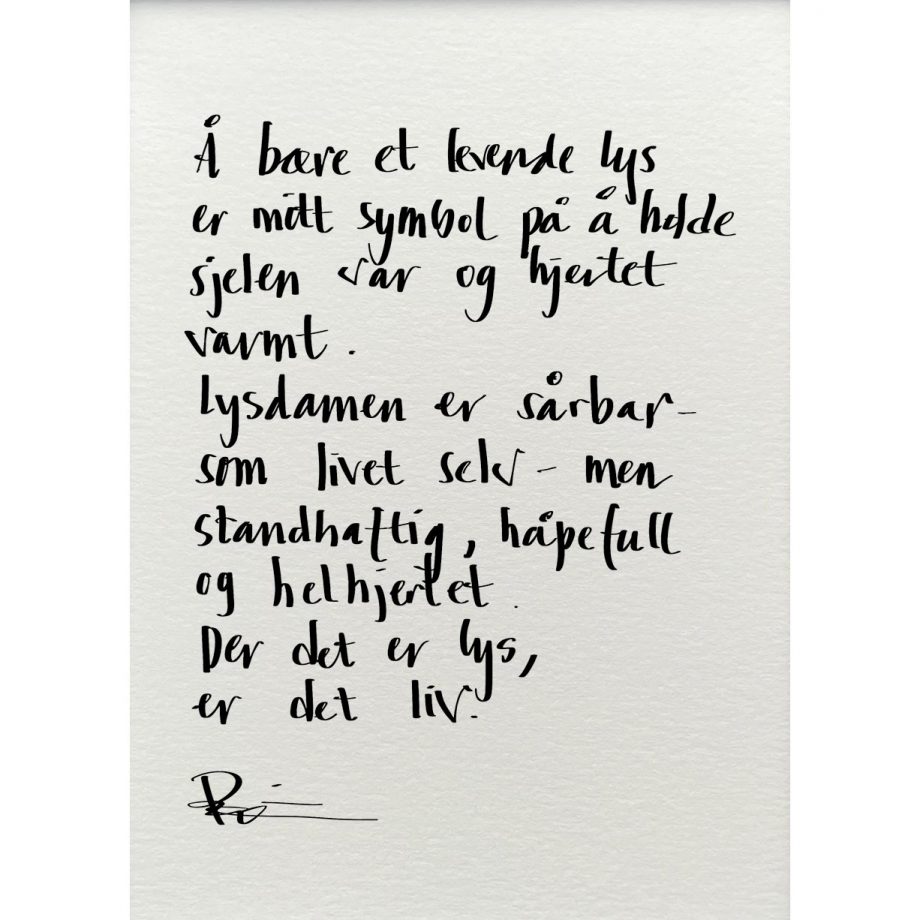 Å bære et levende lys
er mitt symbol på å holde
sjelen var og hjertet
varmt.
Lysdamen er sårbar –
som livet selv – men
standhaftig, håpefull
og helhjertet.
Der det er lys,
er det liv.